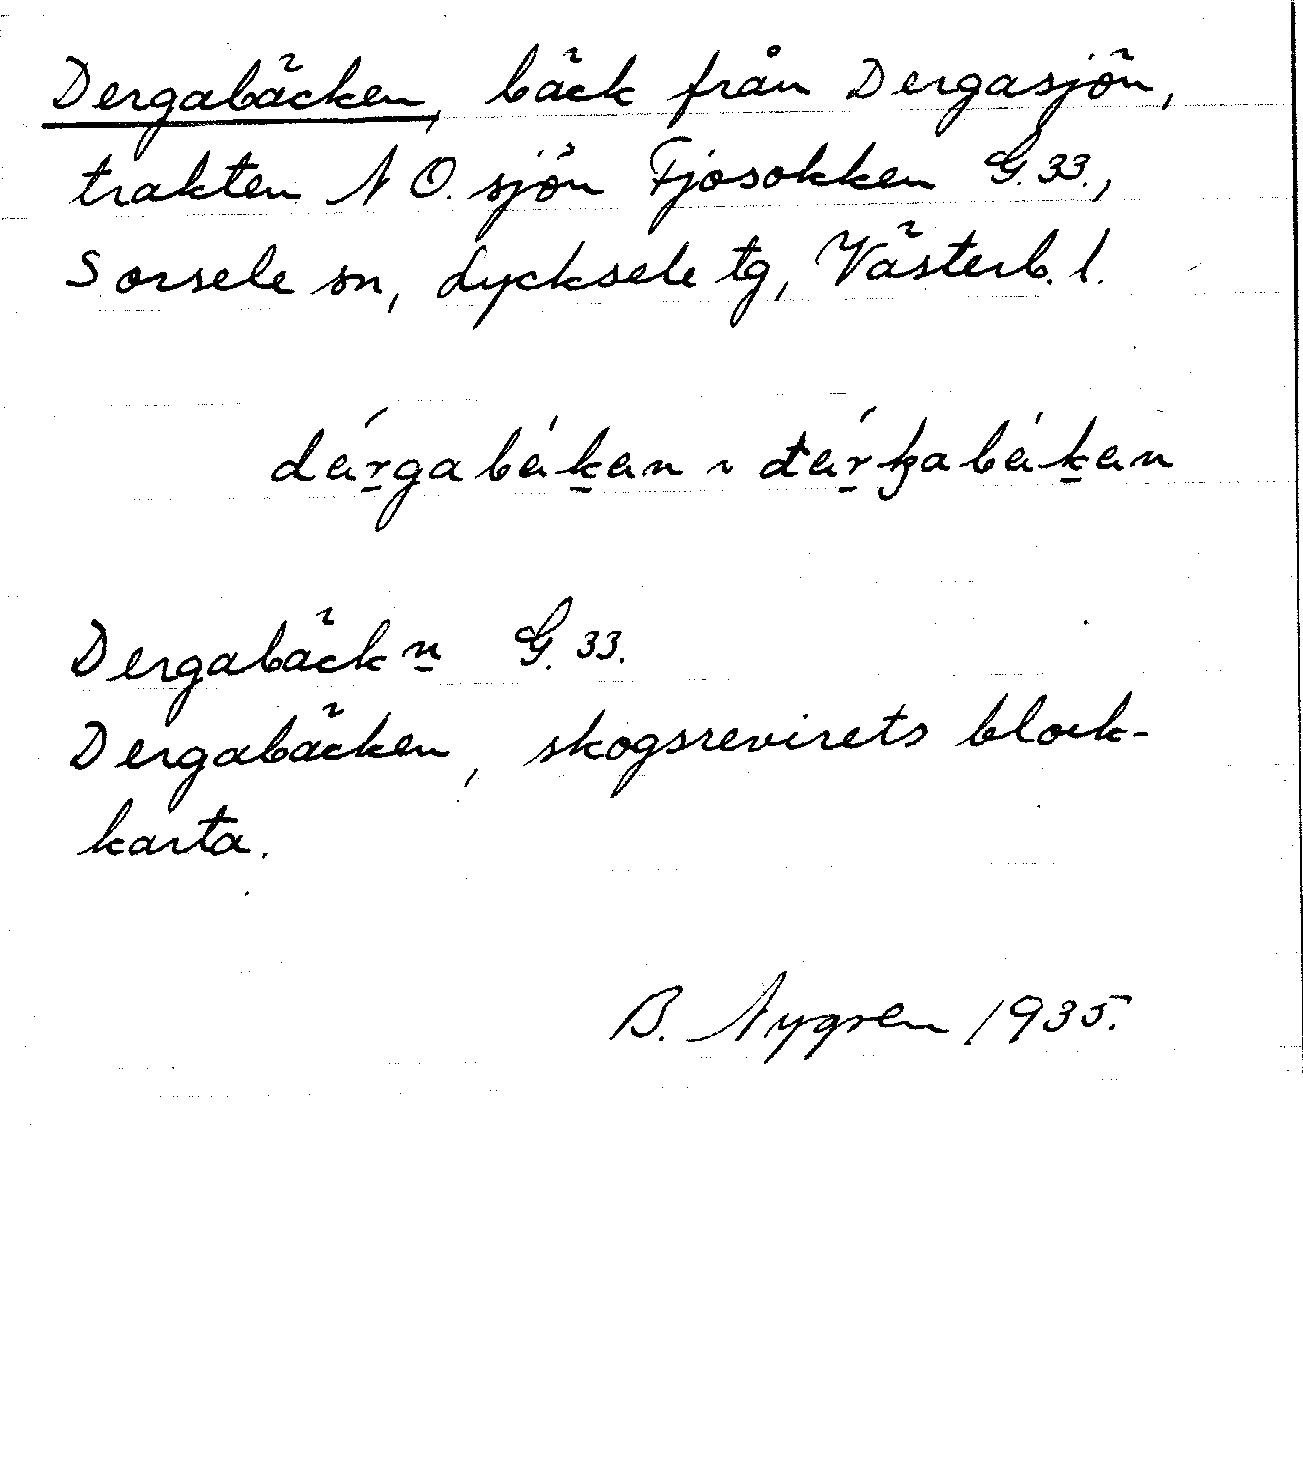 Dergabäcken, bäck från Dergasjön,
trakten N O. sjön Fjosokken G. 33.,
Sorsele sn, Lycksele tg, Västerb. l.
dérgabékan ~ dérgabékan
Dergabäckn G. 33.
Dergabäcken, skogsrevirets block-
karta.
B. Nygren 1935.